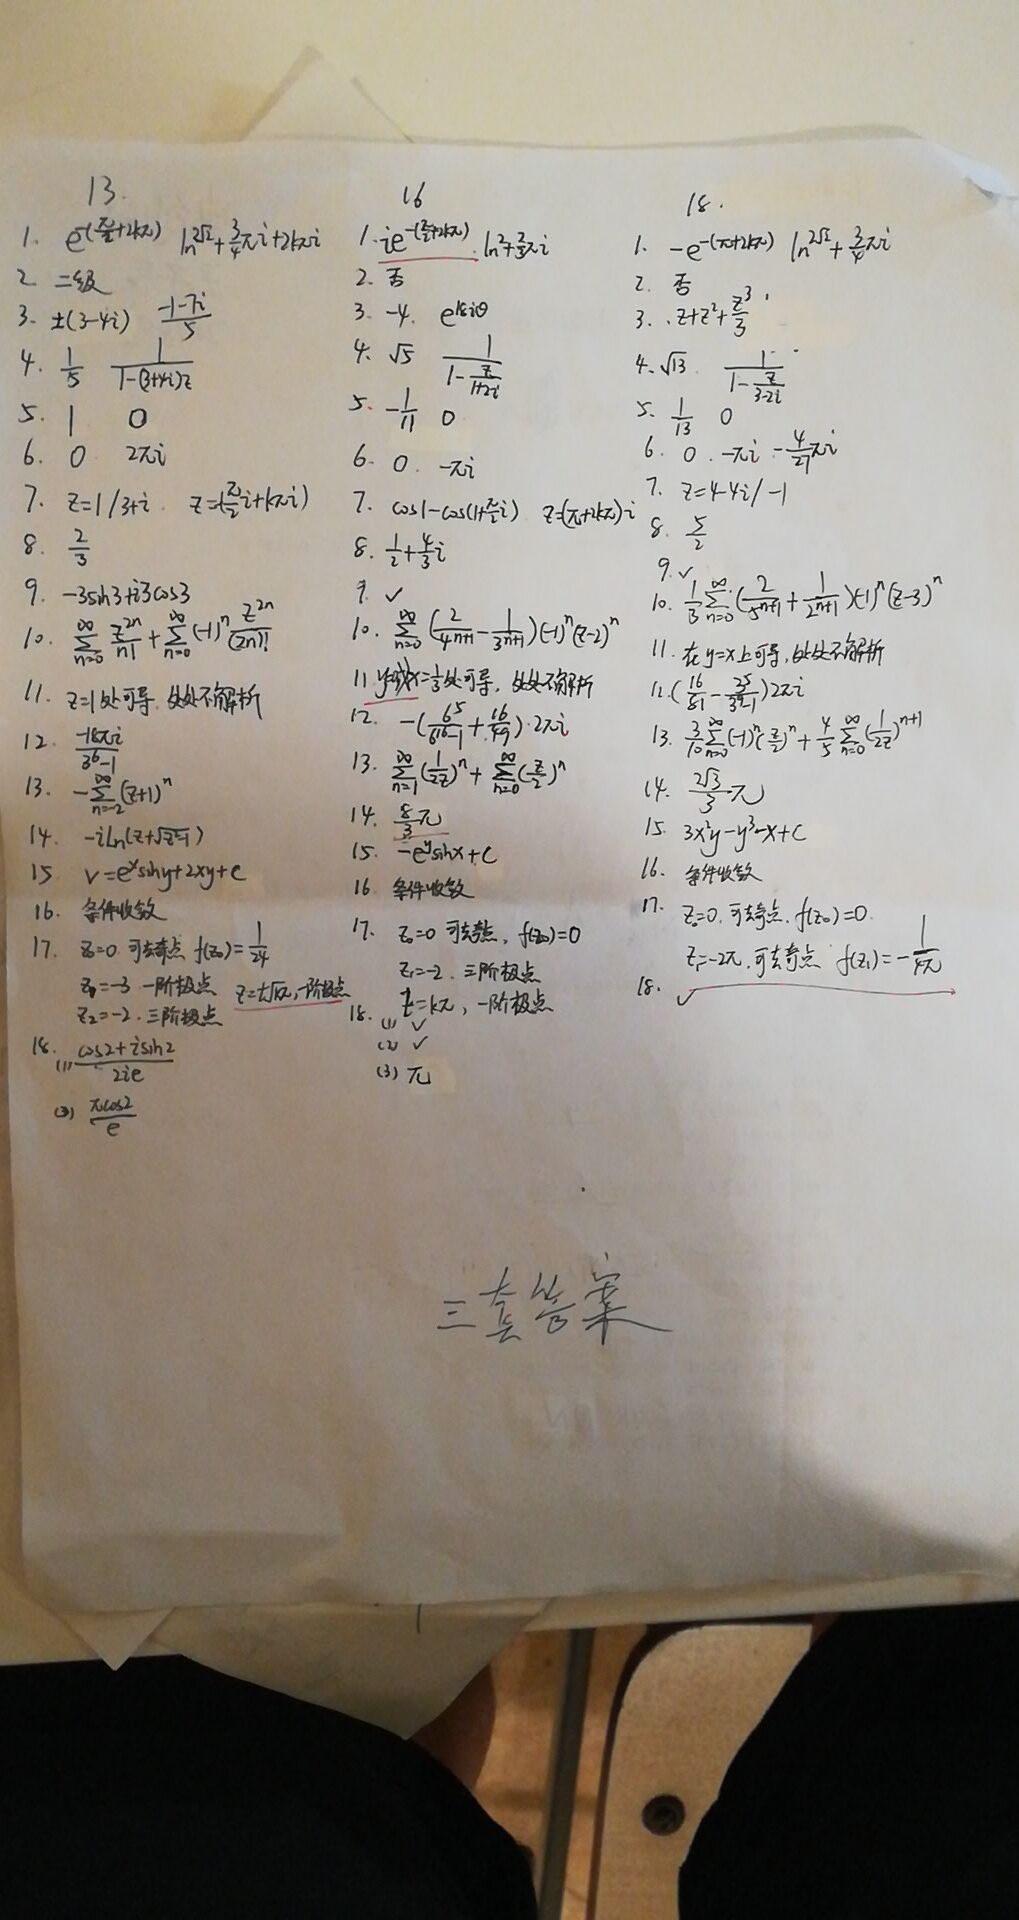 13.
1. e^{-(π/2+2kπ)} ln^{2√2}+3/4πi+2kπi
2. 二级
3. ±(3-4i) (-1-7i)/5
4. 1/5 1/(1-(3+4i)z)
5. 1 0
6. 0 2πi
7. z=1/3+i. z=(π/2i+kπi)
8. 2/3
9. -3sin3+i3cos3
10. ∑_{n=0}^{∞} z^{2n}/n! + ∑_{n=0}^{∞} (-1)^n z^{2n}/(2n)!
11. z=1处可导,处处不解析
12. -18πi/(3^6-1)
13. -∑_{n=-2}^{∞}(z+1)^n
14. -iLn(z+√z²-1)
15. v=e^x siny+2xy+c
16. 条件收敛
17. z₀=0 可去奇点 f(z₀)=1/24
z₁=-3 一阶极点 z=±√kπ,一阶极点
z₂=-2. 三阶极点
18. (1) (cos2+isin2)/2ie
πcos2/e
16
1. ie^{-(π/2+2kπ)}. ln2+2/3πi
2. 否
3. -4. e^{18iθ}
4. √5 1/(1-z/(1+2i))
5. -1/11 0
6. 0. -πi
7. cos1-cos(1+π/2i) z=(π+2kπ)i
8. 1/2+4/3i
9. ✓
10. ∑_{n=0}^{∞}(2/4^{n+1}-1/3^{n+1})(-1)^n(z-2)^n
11. 处可导,处处不解析
12. -(6^5/(6^6-1)+16/49)·2πi
13. ∑_{n=1}^{∞}(1/2z)^n+∑_{n=0}^{∞}(z/2)^n
14. 8/3π
15. -e^y sinx+c
16. 条件收敛
17. z₀=0 可去奇点, f(z₀)=0
z₁=-2. 三阶极点
z=kπ, 一阶极点
18. (1) ✓
(2) ✓
(3) π
18.
1. -e^{-(π+2kπ)} ln^{2√2}+3/4πi
2. 否
3. z+z²+z³/3
4. √13 1/(1-z/(3-2i))
5. 1/13 0
6. 0. -πi -4/27πi
7. z=4-4i/-1
8. 5/2
9. ✓
10. 1/3∑_{n=0}^{∞}(2/5^{n+1}+1/2^{n+1})(-1)^n(z-3)^n
11. 在y=x上可导,处处不解析
12. 2πi
13. 3/10∑_{n=0}^{∞}(-1)^n(z/2)^n+4/5∑_{n=0}^{∞}(1/2z)^{n+1}
14. 2√3/3π
15. 3x²y-y³-x+c
16. 条件收敛
17. z₀=0.可去奇点. f(z₀)=0
z₁=-2π,可去奇点 f(z₁)=-1/4π
18. ✓
三套答案